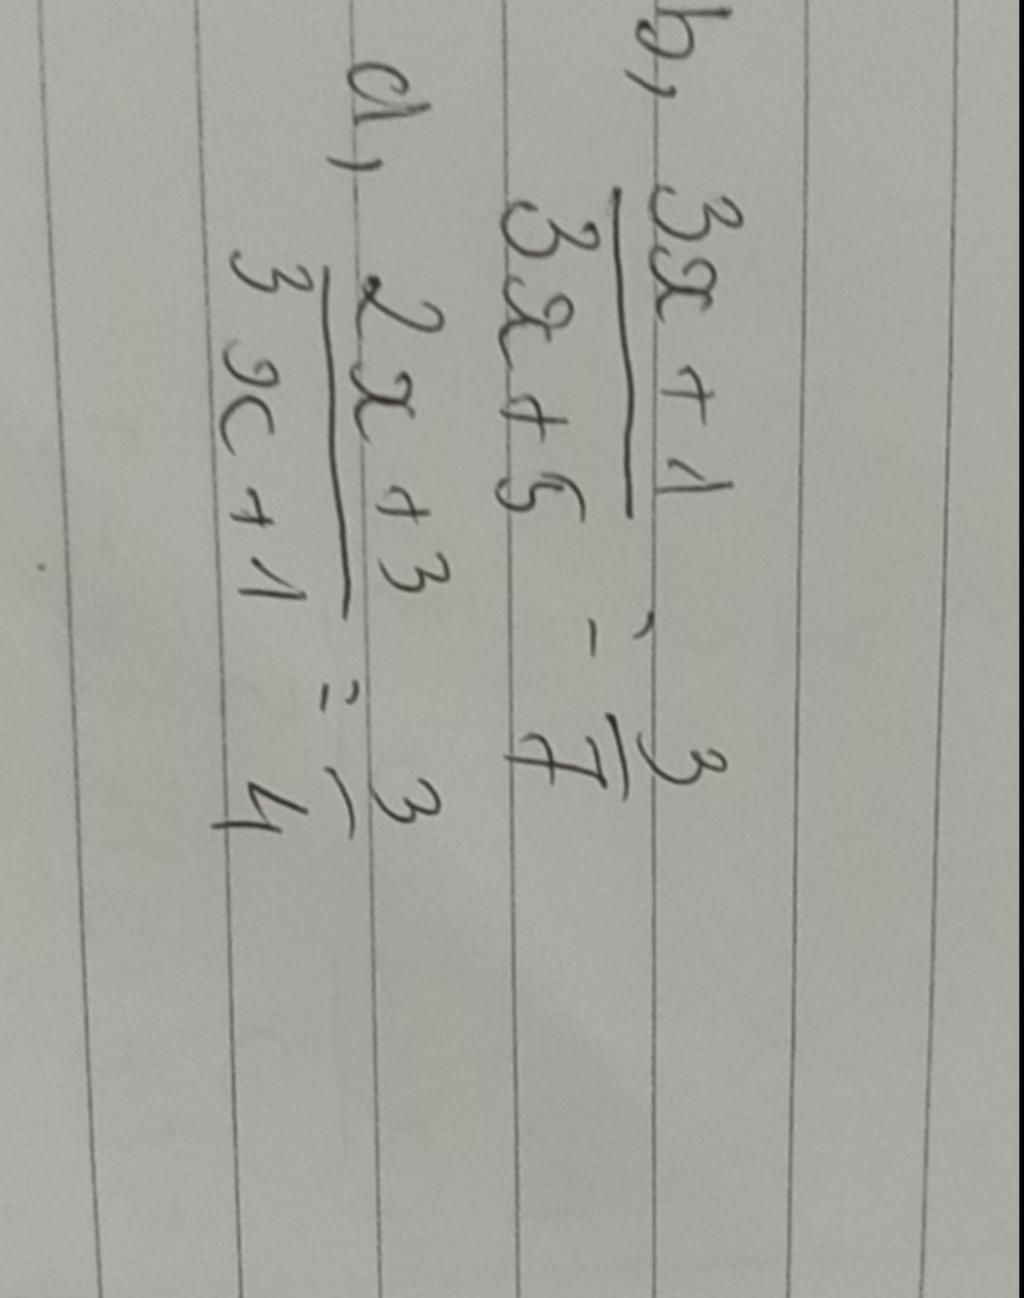 b, 3x + 1 / 3x + 5 = 3 / 7
d, 2x + 3 / 3x + 1 = 3 / 4